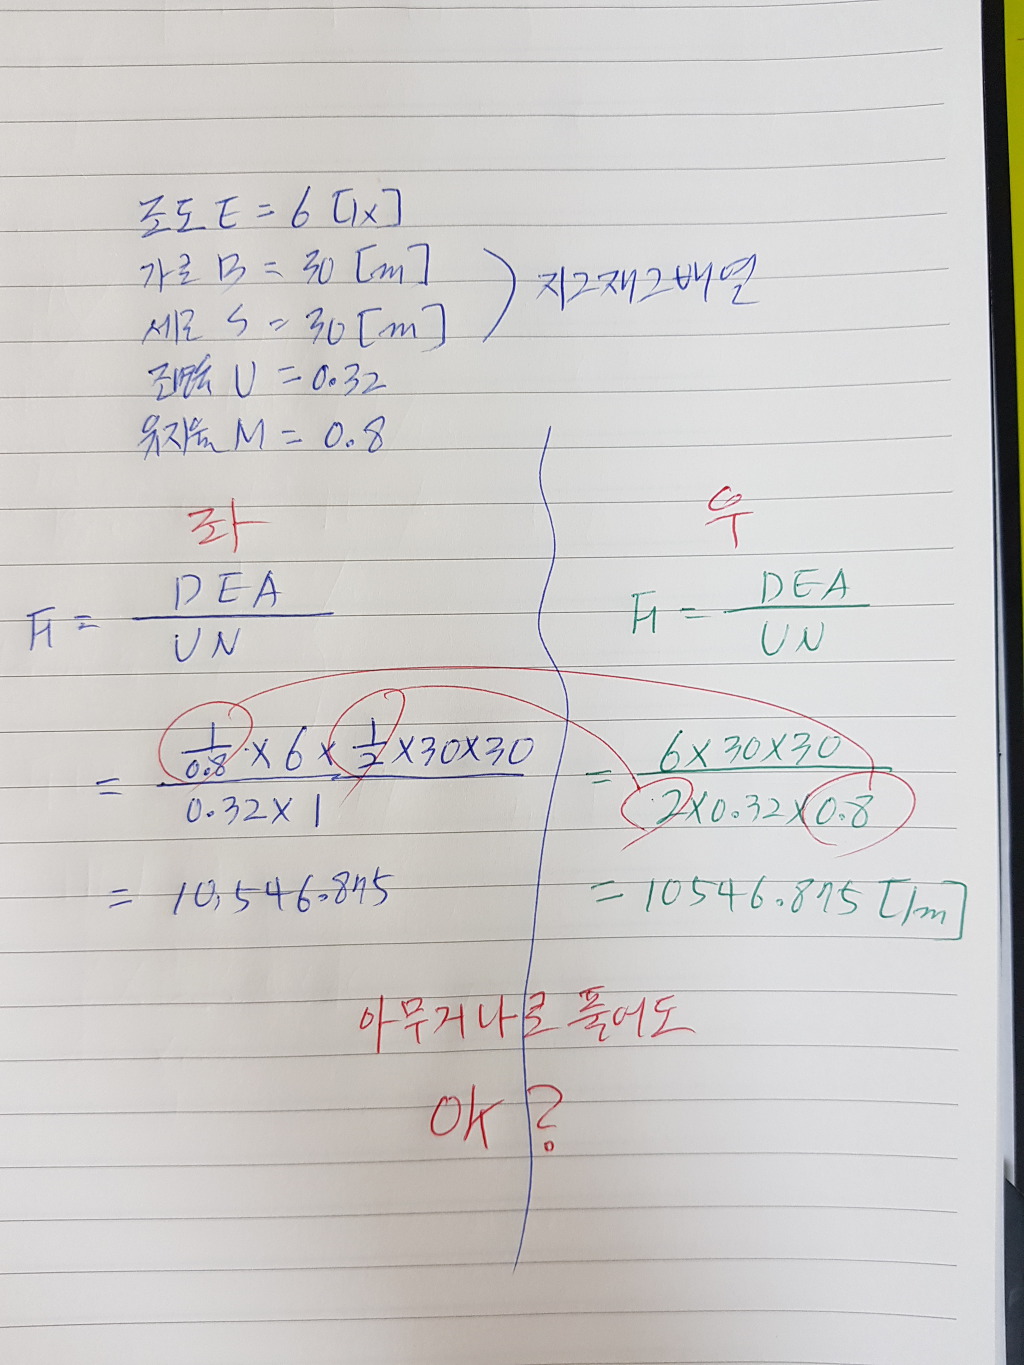 조도 E = 6 [lx]
가로 B = 30 [m]
세로 S = 30 [m]
) 지그재그배열
조명율 U = 0.32
유지율 M = 0.8
좌
F = DEA / UN
= 1/0.8 × 6 × 1/2 × 30 × 30 / 0.32 × 1
= 10,546.875
우
F = DEA / UN
= 6 × 30 × 30 / 2 × 0.32 × 0.8
= 10546.875 [lm]
아무거나로 풀어도
OK ?